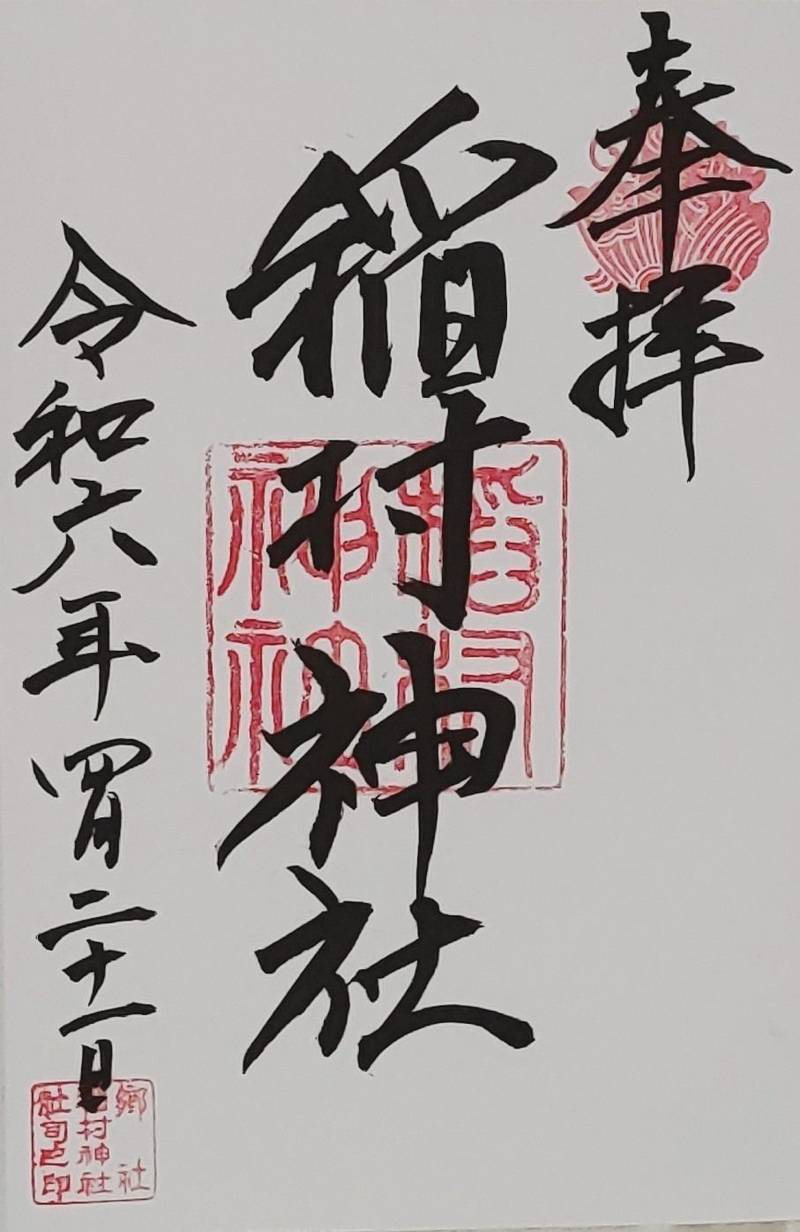 奉拝
稲村神社
令和六年四月二十一日
稲村
神社
郷社
稲村神社
社司之印